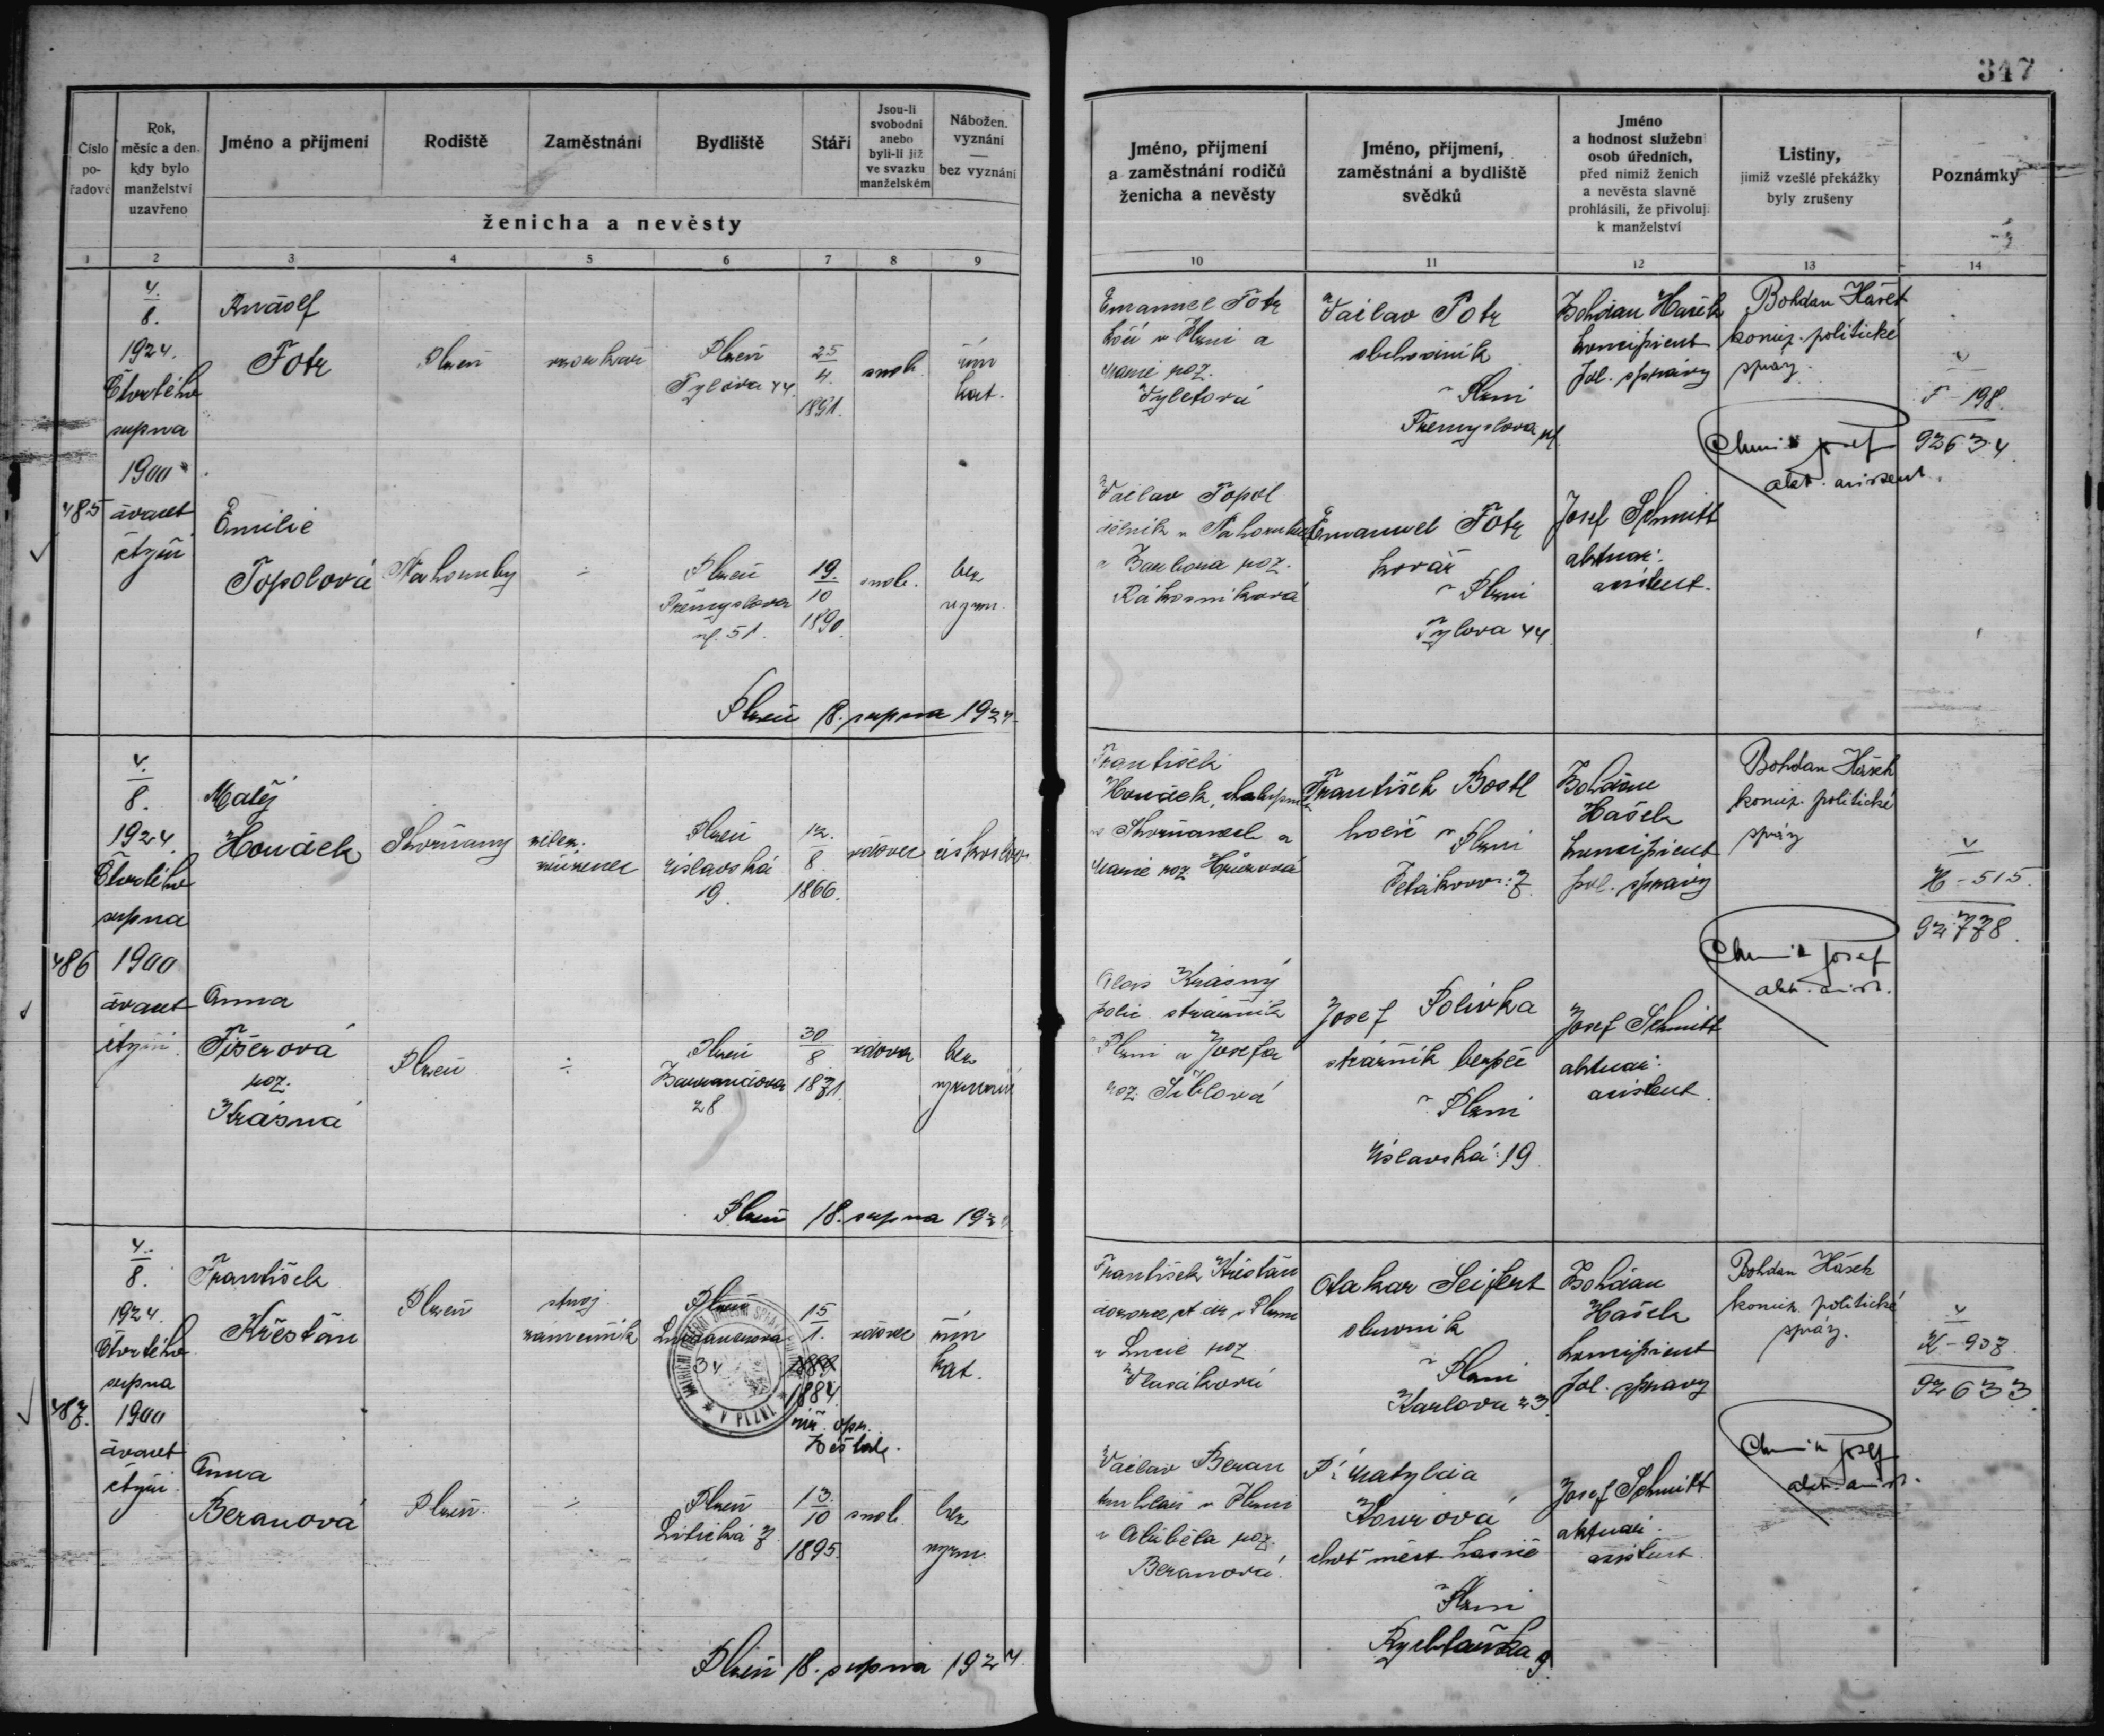 347
Číslo pořadové
Rok, měsíc a den, kdy bylo manželství uzavřeno
Jméno a příjmení
Rodiště
Zaměstnání
Bydliště
Stáří
Jsou-li svobodni anebo byli-li již ve svazku manželském
Nábožen. vyznání — bez vyznání
ženicha a nevěsty
1 2 3 4 5 6 7 8 9
Jméno, příjmení a zaměstnání rodičů ženicha a nevěsty
Jméno, příjmení, zaměstnání a bydliště svědků
Jméno a hodnost služební osob úředních, před nimiž ženich a nevěsta slavně prohlásili, že přivolují k manželství
Listiny, jimiž vzešlé překážky byly zrušeny
Poznámky
10 11 12 13 14
485
4.
8.
1924.
Čtvrtého
srpna
1900
dvacet
čtyři
Rudolf
Fotr
Plzeň
Plzeň
Tylova 44.
25
4.
1891.
svob.
řím
kat.
Emilie
Topolová
÷
Plzeň
Přemyslova
čp. 51.
19.
10
1890.
svob.
bez
vyzn.
Plzeň 18. srpna 1924
Emanuel Fotr
kočí v Plzni a
Marie roz.
Výletová
Václav Topol
dělník v
a Barbora roz.
Rákosníková
Václav Fotr
obchodník
v Plzni
Přemyslova
Emanuel Fotr
kovář
v Plzni
Tylova 44
Bohdan Hašek
koncipient
pol. správy
Josef Schmitt
aktuár.
asistent.
Bohdan Hášek
koncip. politické
správy.
Josef
akt. assistent.
F - 198.
92634
486
4.
8.
1924.
Čtvrtého
srpna
1900
dvacet
čtyři.
Matěj
Houdek
Skvrňany
Plzeň
19.
12.
8
1866.
vdovec
Anna
Fišerová
roz.
Krásná
Plzeň
÷
Plzeň
Barrandova
28
30
8
1871.
vdova
bez
vyznání
Plzeň 18. srpna 192
František
Houdek,
v Skvrňanech a
Marie roz.
Alois Krásný
polic. strážník
v Plzni a Josefa
roz.
František Bostl
v Plzni
Josef Polívka
strážník bezpeč
v Plzni
19
Bohdan
Hašek
koncipient
pol. správy
Josef Schmitt
aktuár.
asistent.
Bohdan Hášek
koncip. politické
správy
Josef
akt. asist.
H - 515.
92778.
487.
4.
8.
1924.
Čtvrtého
srpna
1900
dvacet
čtyři.
František
Křesťan
Plzeň
stroj.
zámečník
Plzeň
34
15
1.
1888
1884
vdovec
řím
kat.
V PLZNI
Anna
Beranová
Plzeň.
÷
Plzeň
Litická 7
13.
10
1895.
svob.
bez
vyzn.
Plzeň 18. srpna 1924.
František Křesťan
v Plzni
a Lucie roz
Václav Beran
truhlář v Plzni
a Alžběta roz.
Beranová.
Otakar Seifert
v Plzni
Karlova 23.
Kourová
choť měst. hasiče
v Plzni
Rychtářka 9
Bohdan
Hašek
koncipient
pol. správy
Josef Schmitt
aktuár.
asistent.
Bohdan Hásek
koncip. politické
správy.
Josef
akt. asist.
K - 937
92633